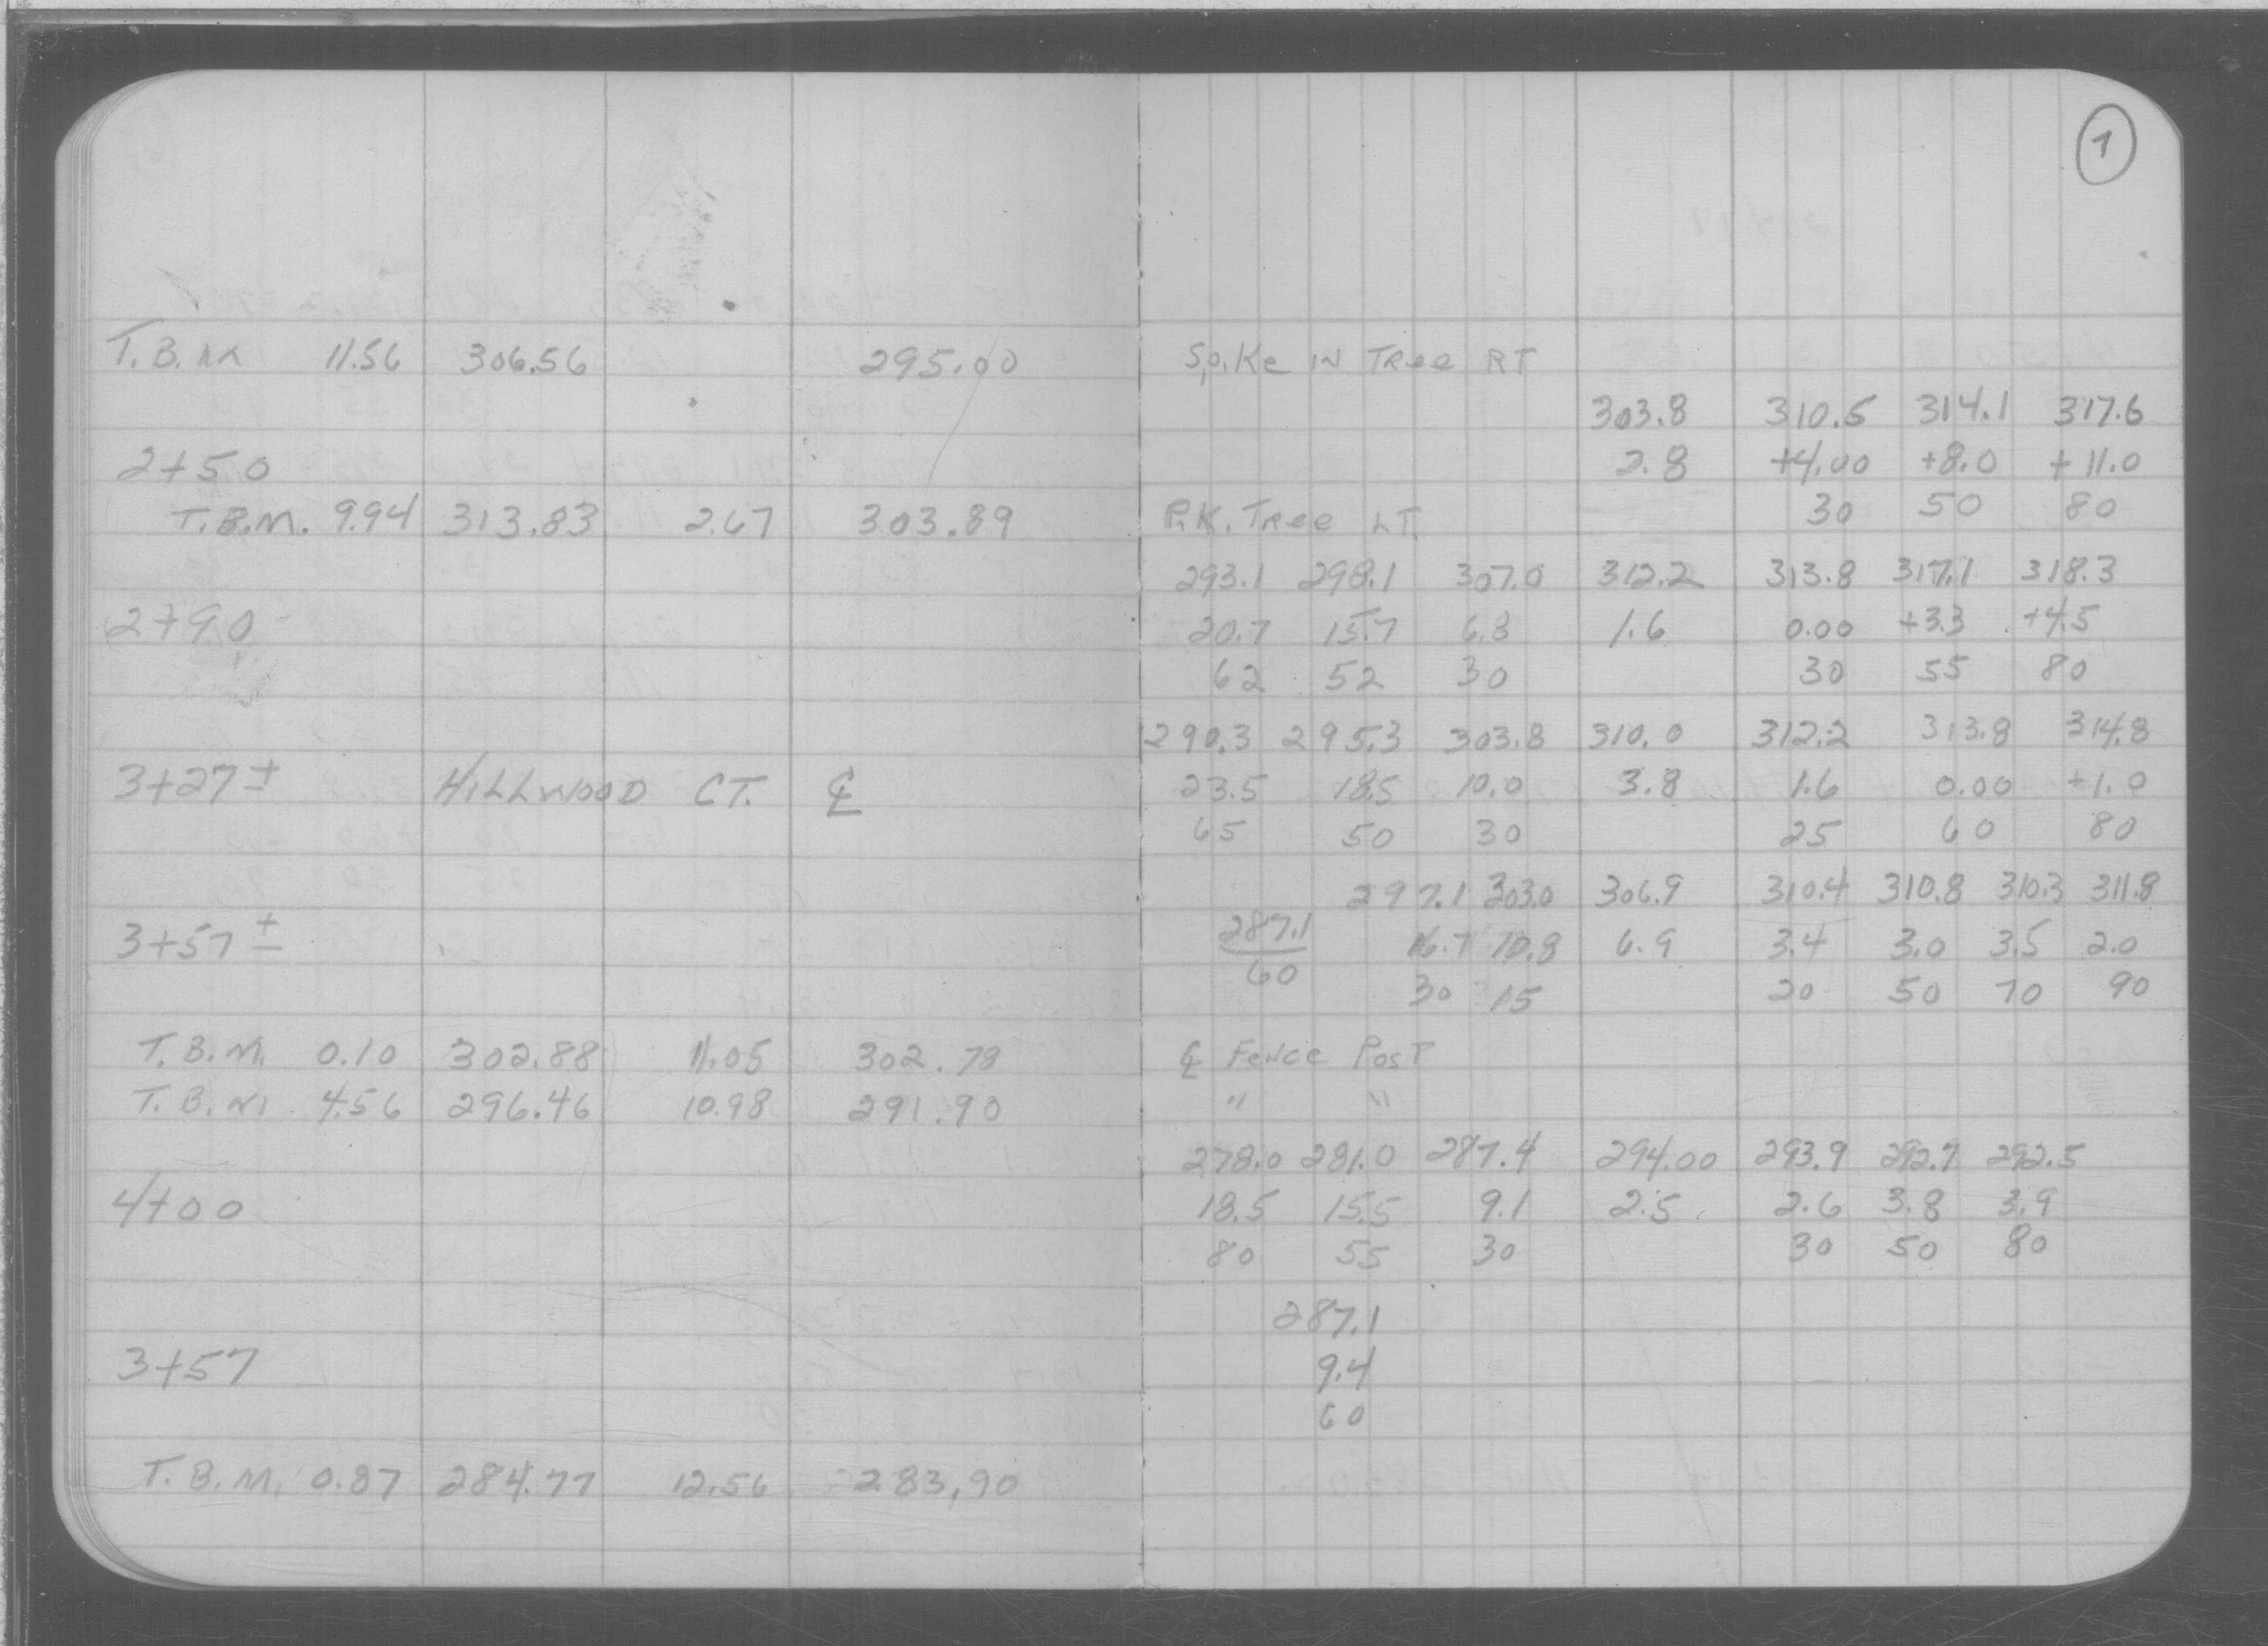 1
T.B.M 11.56 306.56 295.00 Spike in Tree RT
303.8 310.5 314.1 317.6
2+50 2.8 +4.00 +8.0 +11.0
30 50 80
T.B.M. 9.94 313.83 2.67 303.89 P.K. Tree LT.
293.1 298.1 307.0 312.2 313.8 317.1 318.3
2+90 20.7 15.7 6.8 1.6 0.00 +3.3 +4.5
62 52 30 30 55 80
290.3 295.3 303.8 310.0 312.2 313.8 314.8
3+27± HILLWOOD CT. ℄ 23.5 18.5 10.0 3.8 1.6 0.00 +1.0
65 50 30 25 60 80
297.1 303.0 306.9 310.4 310.8 310.3 311.8
3+57± 287.1 16.7 10.8 6.9 3.4 3.0 3.5 2.0
60 30 15 20 50 70 90
T.B.M. 0.10 302.88 11.05 302.78 ℄ Fence Post
T.B.M 4.56 296.46 10.98 291.90 " "
278.0 281.0 287.4 294.00 293.9 292.7 292.5
4+00 18.5 15.5 9.1 2.5 2.6 3.8 3.9
80 55 30 30 50 80
287.1
3+57 9.4
60
T.B.M. 0.87 284.77 12.56 283,90